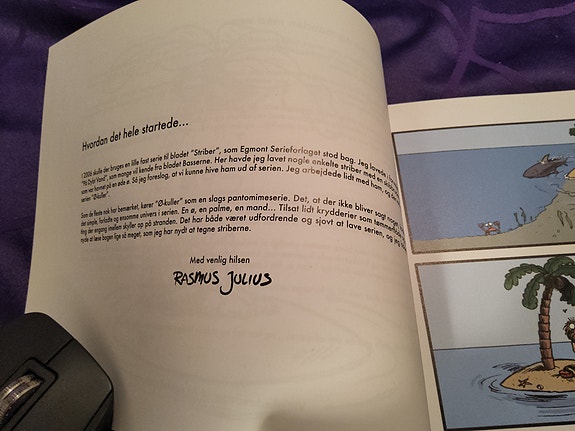 Hvordan det hele startede...
I 2006 skulle der bruges en lille fast serie til bladet "Striber", som Egmont Serieforlaget stod bag. Jeg lavede i
"På Dybt Vand", som mange vil kende fra bladet Basserne. Her havde jeg lavet nogle enkelte striber med en
som var havnet på en øde ø. Så jeg foreslog, at vi kunne hive ham ud af serien. Jeg arbejdede lidt med ham, og
serien "Ø-kuller".
Som de fleste nok har bemærket, kører "Ø-kuller" som en slags pantomimeserie. Det, at der ikke bliver sagt noget
det simple, forladte og ensomme univers i serien. En ø, en palme, en mand... Tilsat lidt krydderier som
ting der engang imellem skyller op på stranden. Det har både været udfordrende og sjovt at lave serien, og jeg
nyde at læse bogen lige så meget, som jeg har nydt at tegne striberne.
Med venlig hilsen
RASMUS JULIUS